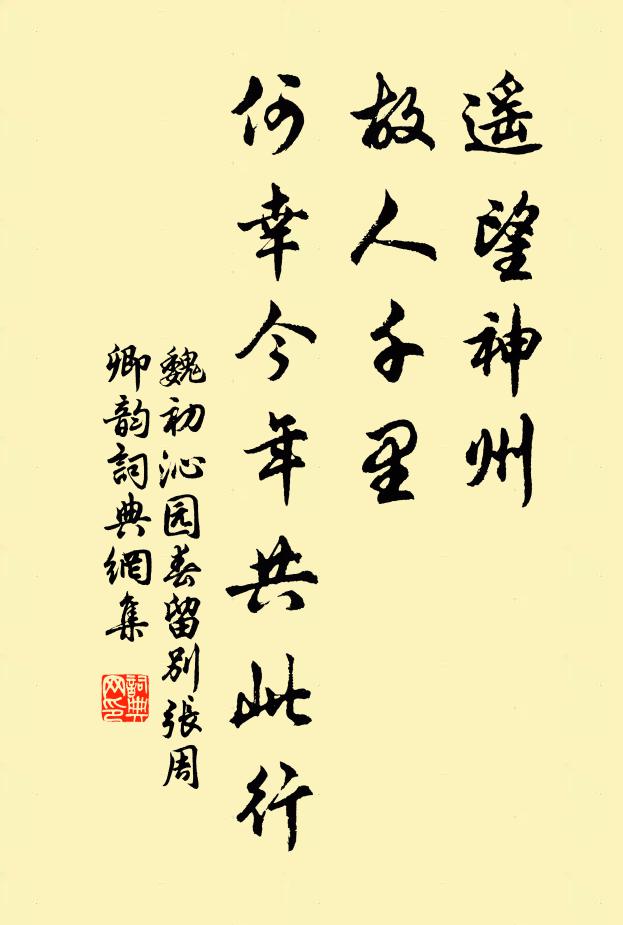 遥望神州
故人千里
何幸今年共此行
魏初沁园春留别張周
卿韵詞典網集
詞典
网印